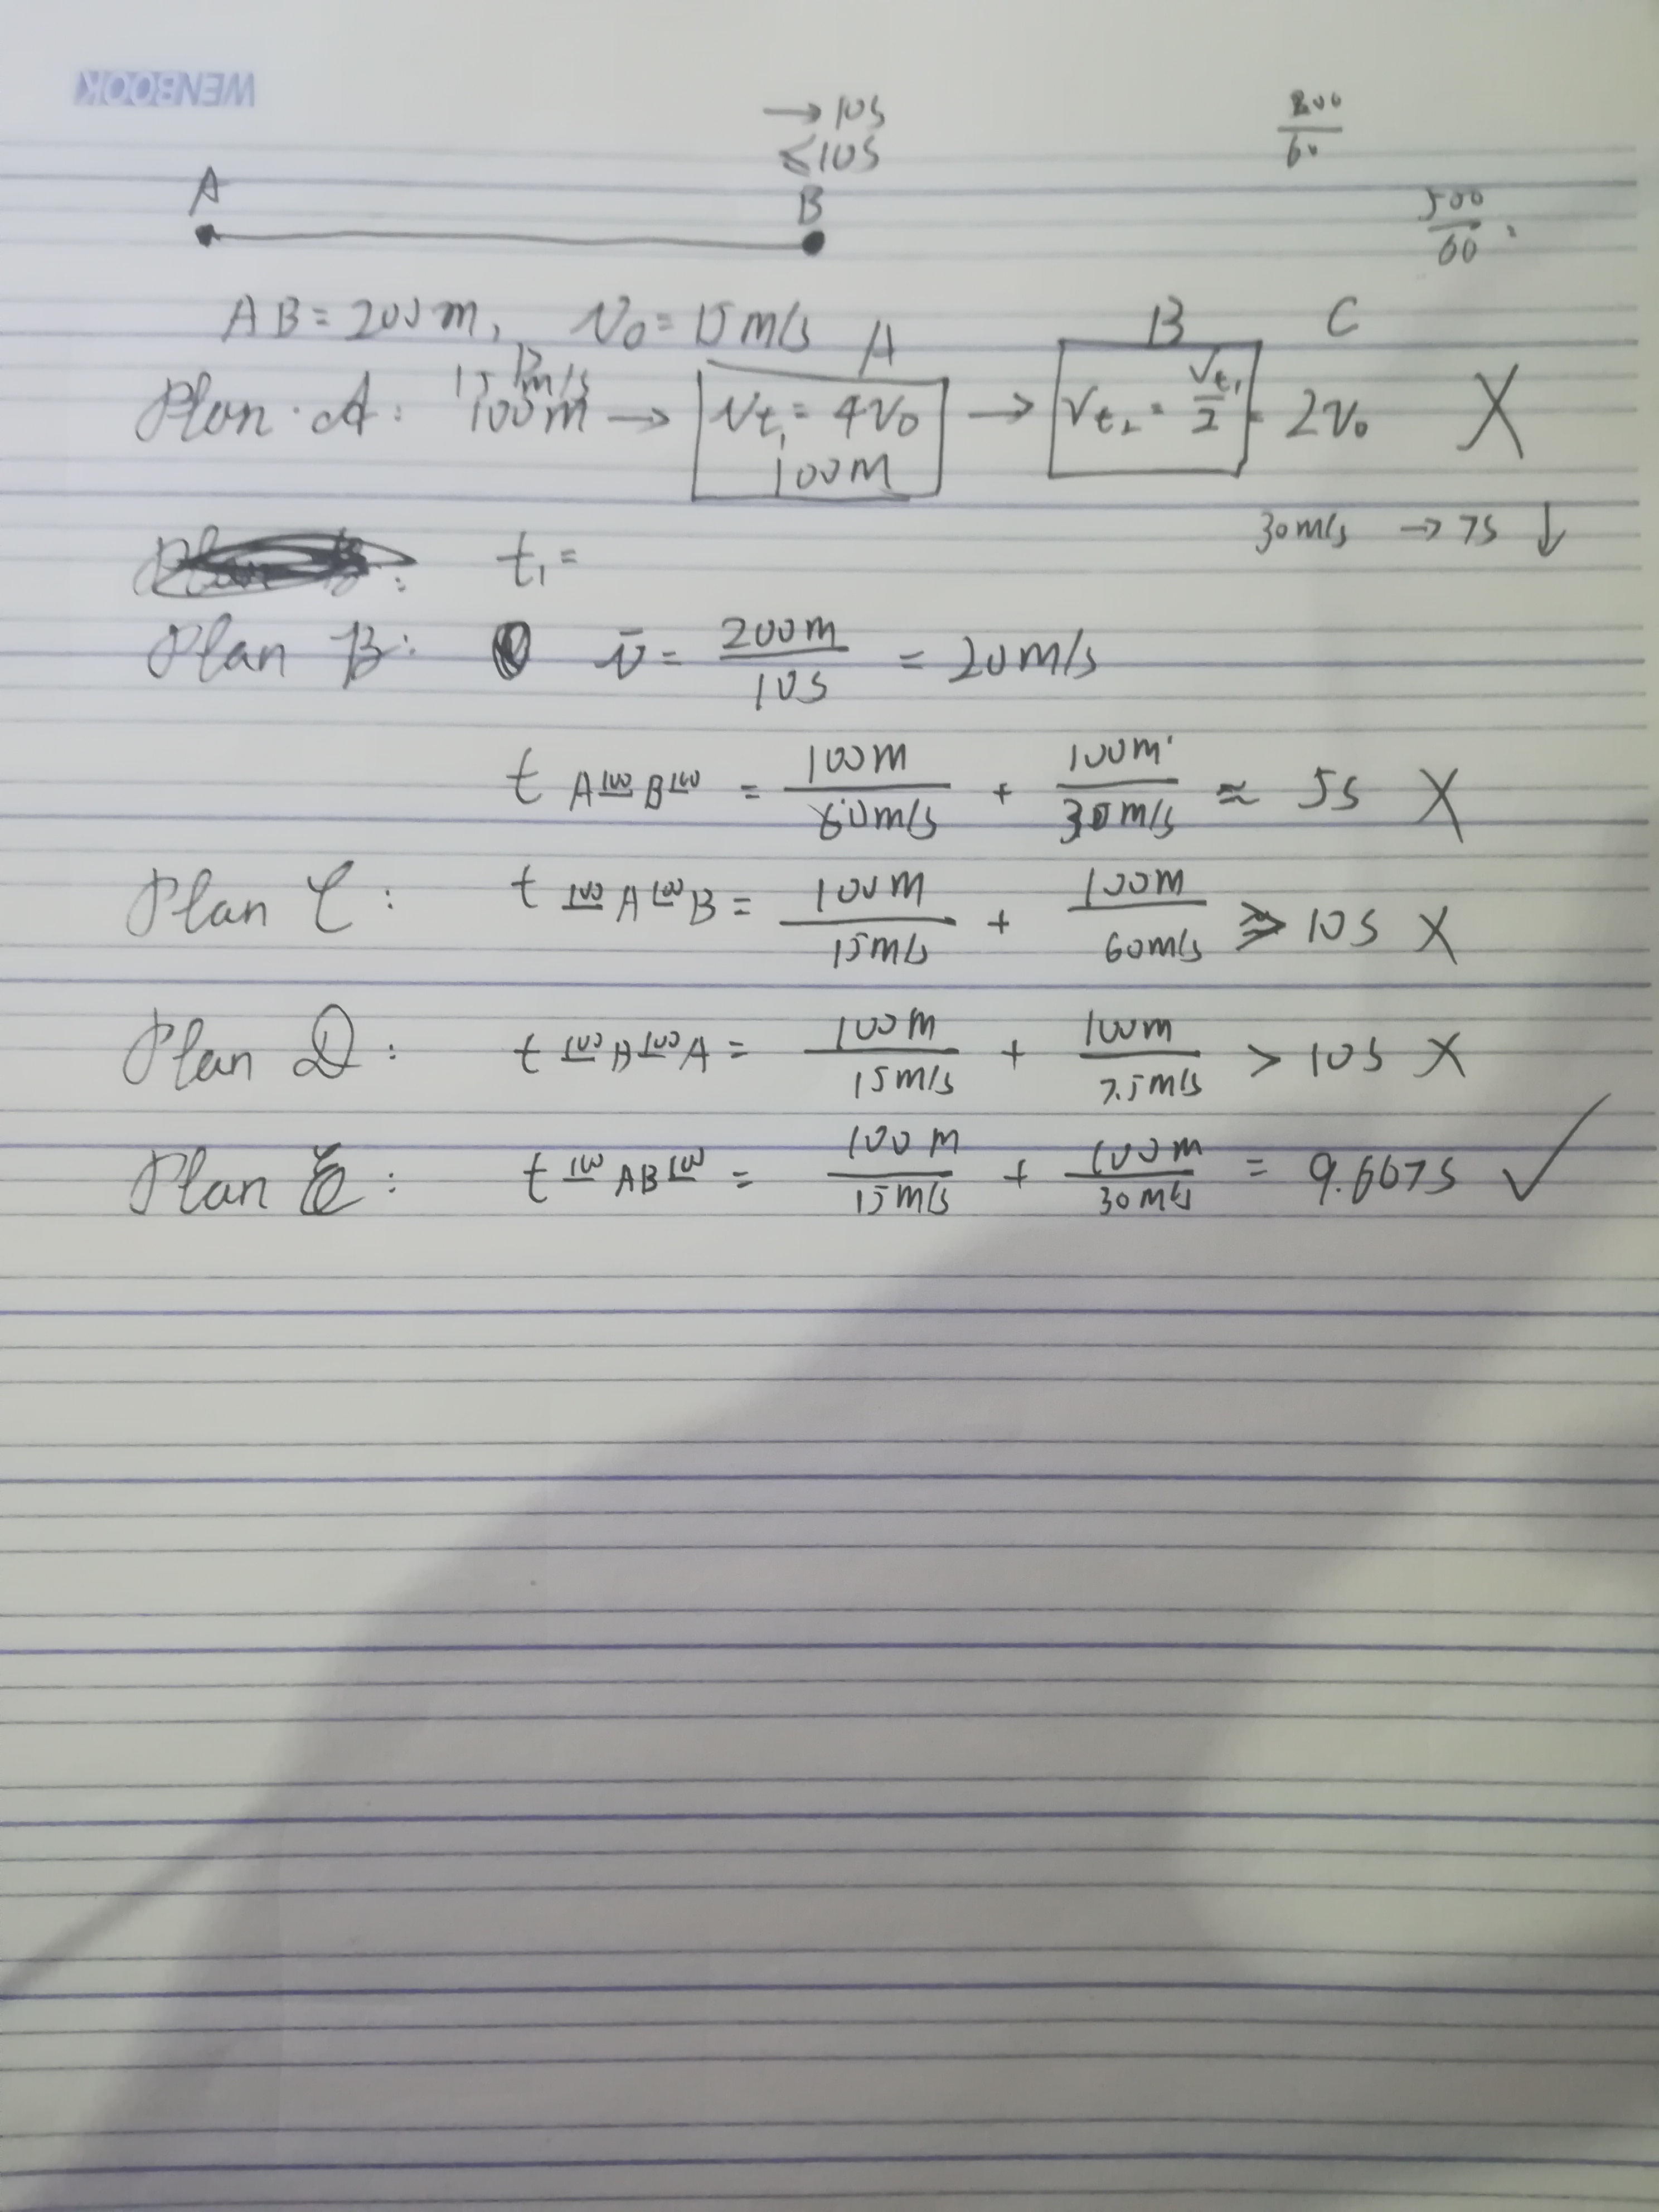 WENBOOK
→ 10s
≤10s
A B
200/60
500/60 =
AB = 200m, v₀ = 15m/s
A B C
Plan A: 100m → vt₁ = 4v₀ → vt₂ = vt₁/2 = 2v₀ X
100m
30m/s → 7s ↓
t₁ =
Plan B: v̄ = 200m/10s = 20m/s
t A100B100 = 100m/60m/s + 100m/30m/s ≈ 5s X
Plan C: t 100A100B = 100m/15m/s + 100m/60m/s > 10s X
Plan D: t 100B100A = 100m/15m/s + 100m/7.5m/s > 10s X
Plan E: t 100AB100 = 100m/15m/s + 100m/30m/s = 9.667s ✓